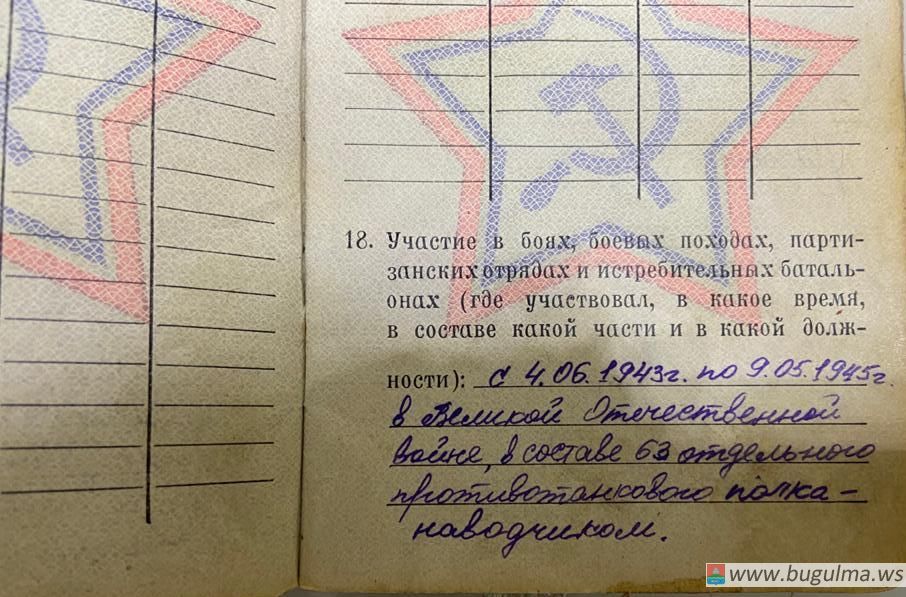 18. Участие в боях, боевых походах, парти-
занских отрядах и истребительных баталь-
онах (где участвовал, в какое время,
в составе какой части и в какой долж-
ности): с 4.06.1943г. по 9.05.1945г.
в Великой Отечественной
войне, в составе 63 отдельного
противотанкового полка -
наводчиком.
www.bugulma.ws